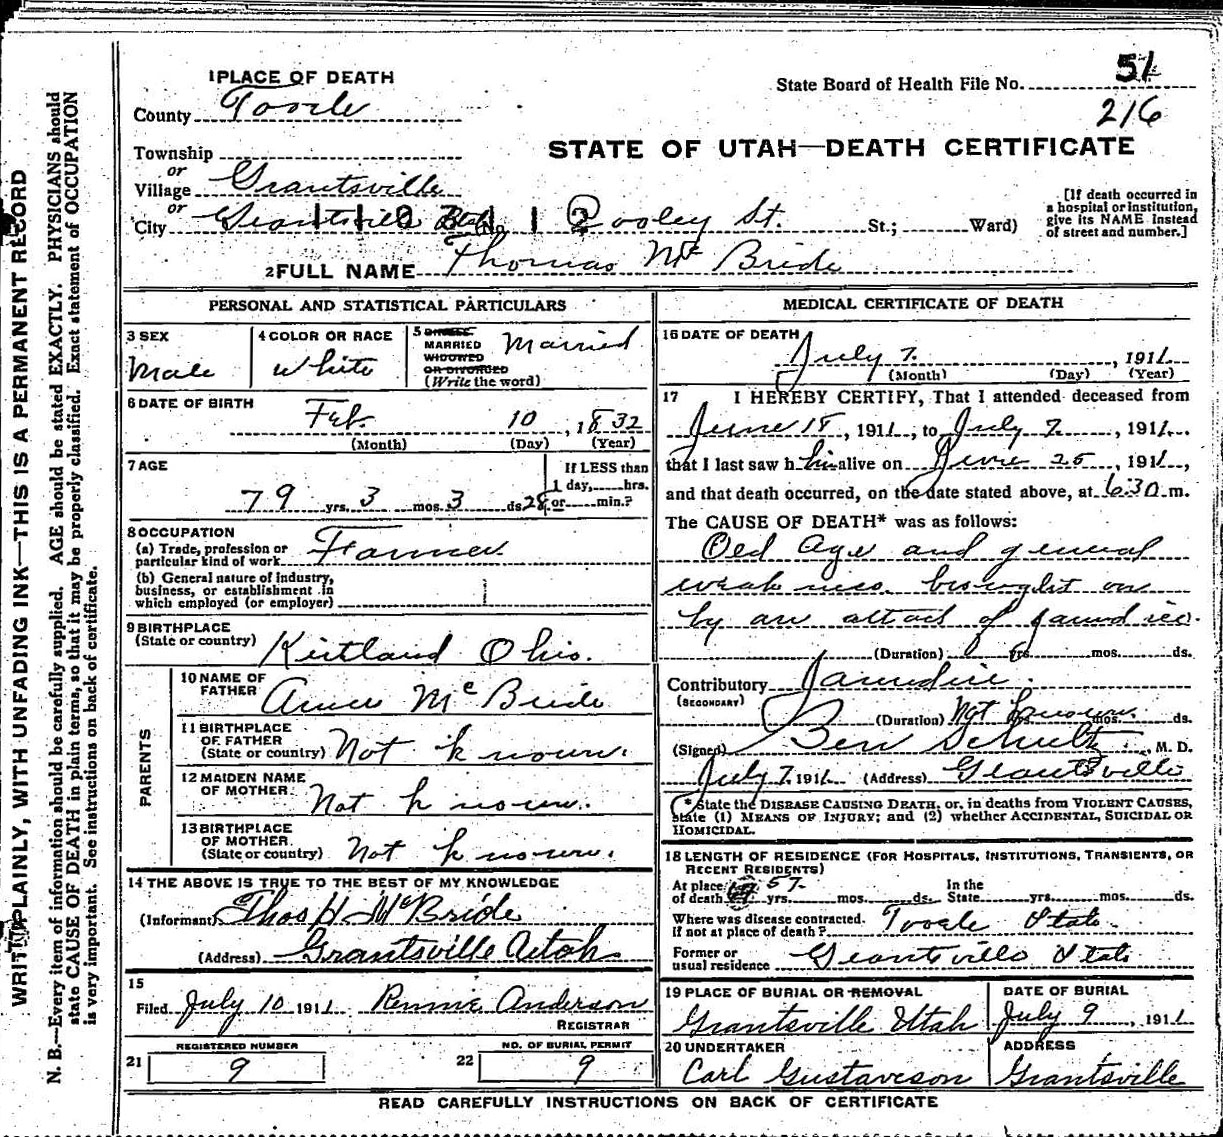 1 PLACE OF DEATH
State Board of Health File No. 51
216
County Tooele
STATE OF UTAH—DEATH CERTIFICATE
Township
or
Village Grantsville
or
City Grantsville Utah No. Cooley St. St.; Ward)
[If death occurred in
a hospital or institution,
give its NAME instead
of street and number.]
2 FULL NAME Thomas McBride
PERSONAL AND STATISTICAL PARTICULARS
3 SEX
Male
4 COLOR OR RACE
White
5 SINGLE
MARRIED
WIDOWED
OR DIVORCED
(Write the word)
Married
6 DATE OF BIRTH
Feb. 10, 1832
(Month) (Day) (Year)
7 AGE
79 yrs. 3 mos. 3 ds. 28
If LESS than
1 day, hrs.
or min.?
8 OCCUPATION
(a) Trade, profession or
particular kind of work Farmer
(b) General nature of industry,
business, or establishment in
which employed (or employer)
9 BIRTHPLACE
(State or country) Kirtland Ohio.
PARENTS
10 NAME OF
FATHER McBride
11 BIRTHPLACE
OF FATHER
(State or country) Not known.
12 MAIDEN NAME
OF MOTHER Not known.
13 BIRTHPLACE
OF MOTHER
(State or country) Not known.
14 THE ABOVE IS TRUE TO THE BEST OF MY KNOWLEDGE
(Informant) Thos H McBride
(Address) Grantsville Utah
15
Filed July 10 1911 Rennie Anderson
REGISTRAR
REGISTERED NUMBER
21 9
NO. OF BURIAL PERMIT
22 9
MEDICAL CERTIFICATE OF DEATH
16 DATE OF DEATH
July 7. , 1911
(Month) (Day) (Year)
17 I HEREBY CERTIFY, That I attended deceased from
June 18, 1911, to July 7, 1911,
that I last saw him alive on June 25, 1911,
and that death occurred, on the date stated above, at 630 m.
The CAUSE OF DEATH* was as follows:
Old Age and general
weakness brought on
by an attack of jaundice.
(Duration) yrs. mos. ds.
Contributory Jaundice.
(SECONDARY)
(Duration) Not known. mos. ds.
(Signed) Ben Schultz, M. D.
July 7, 1911 (Address) Grantsville
* State the DISEASE CAUSING DEATH, or, in deaths from VIOLENT CAUSES,
state (1) MEANS OF INJURY; and (2) whether ACCIDENTAL, SUICIDAL OR
HOMICIDAL.
18 LENGTH OF RESIDENCE (FOR HOSPITALS, INSTITUTIONS, TRANSIENTS, OR
RECENT RESIDENTS)
At place
of death 57 yrs. mos. ds.
In the
State yrs. mos. ds.
Where was disease contracted.
If not at place of death? Tooele Utah.
Former or
usual residence Grantsville Utah
19 PLACE OF BURIAL OR REMOVAL
Grantsville Utah
DATE OF BURIAL
July 9, 1911
20 UNDERTAKER
Carl Gustaveson
ADDRESS
Grantsville
READ CAREFULLY INSTRUCTIONS ON BACK OF CERTIFICATE
WRITE PLAINLY, WITH UNFADING INK—THIS IS A PERMANENT RECORD
N. B.—Every item of information should be carefully supplied. AGE should be stated EXACTLY. PHYSICIANS should
state CAUSE OF DEATH in plain terms, so that it may be properly classified. Exact statement of OCCUPATION
is very important. See instructions on back of certificate.